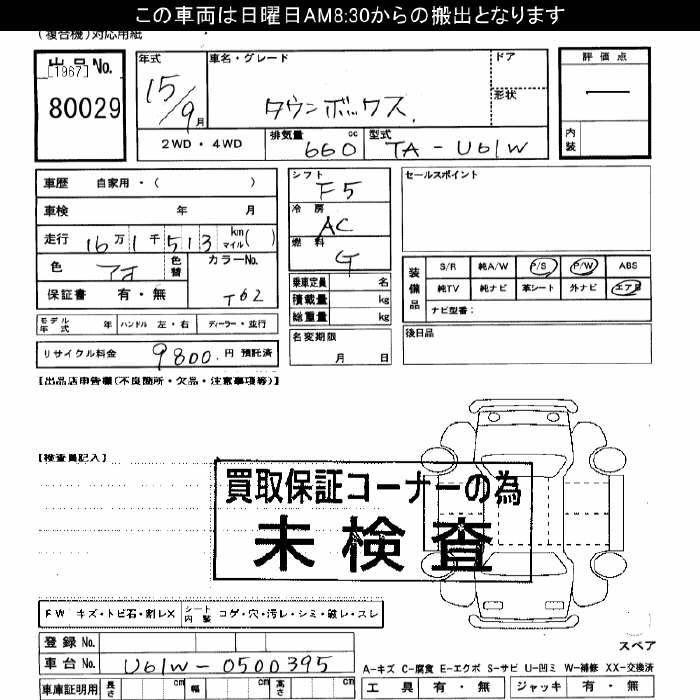 この車両は日曜日AM8:30からの搬出となります
(複合機)対応用紙
出品No.
[1967]
80029
年式
15/9月
車名・グレード
タウンボックス.
ドア
形状
評価点
内装
2WD・4WD
排気量 cc
660
型式
TA-U61W
車歴 自家用・( )
車検 年 月
走行 16万1千513 km マイル( )
色 アオ 色替 カラーNo. T62
保証書 有・無
モデル年式 年 ハンドル 左・右 ディーラー・並行
リサイクル料金 9800.円 預託済
シフト F5
冷房 AC
燃料 G
乗車定員 名
積載量 kg
総重量 kg
名変期限
月 日
セールスポイント
装備品
S/R 純A/W P/S P/W ABS
純TV 純ナビ 革シート 外ナビ エアB
ナビ型番:
後日品
【出品店申告欄(不良箇所・欠品・注意事項等)】
【検査員記入】
買取保証コーナーの為
未検査
FW キズ・トビ石・割レX シート内装 コゲ・穴・汚レ・シミ・破レ・スレ
登録No.
車台No. U61W-0500395
車庫証明用 長さ cm 幅 cm 高さ cm
スペア
A-キズ C-腐食 E-エクボ S-サビ U-凹ミ W-補修 XX-交換済
工具 有・無 ジャッキ 有・無